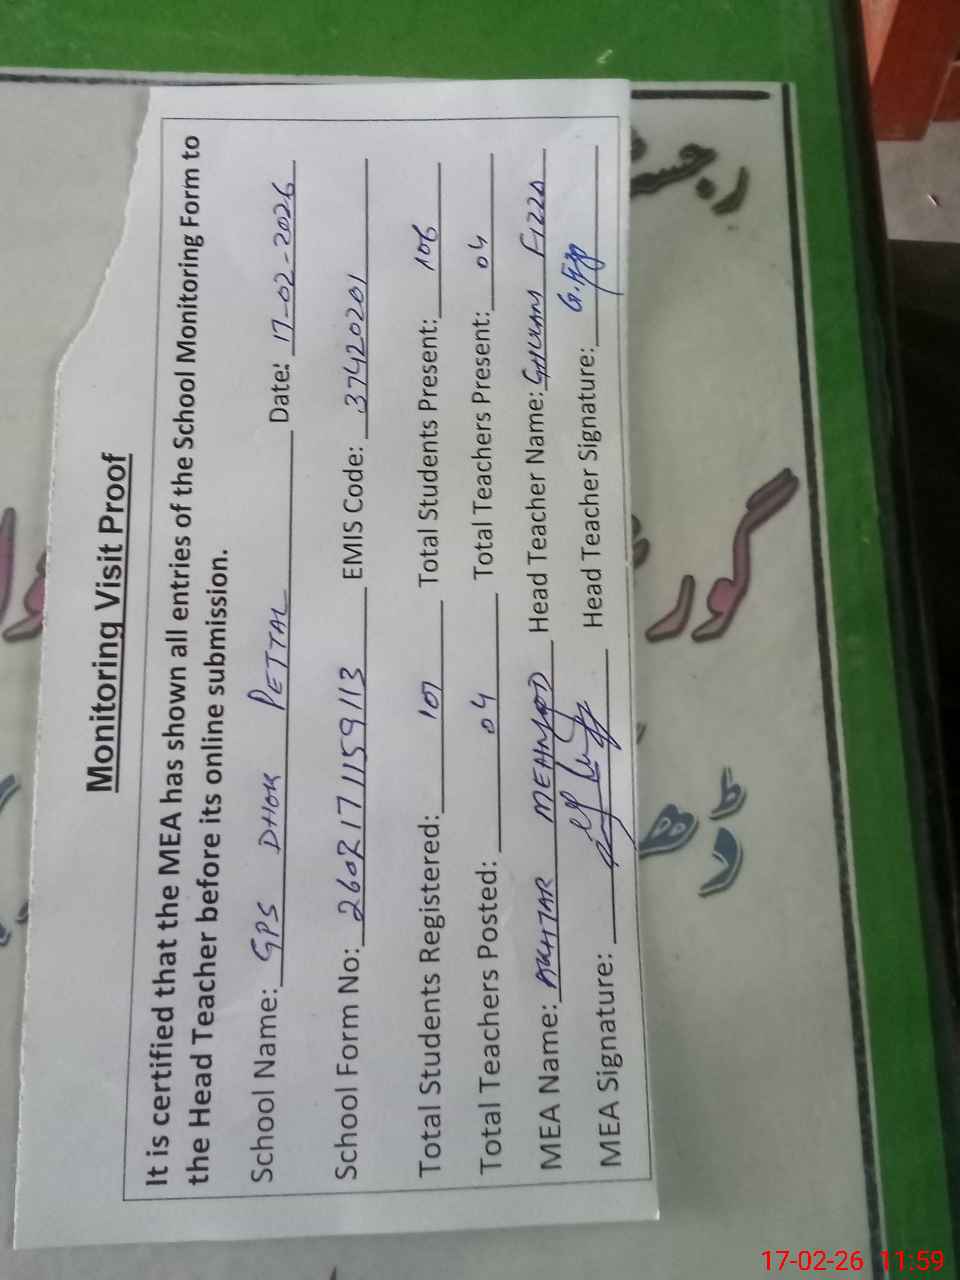 Monitoring Visit Proof
It is certified that the MEA has shown all entries of the School Monitoring Form to
the Head Teacher before its online submission.
School Name: GPS DHOK PETTAL Date: 17-02-2026
School Form No: 2602171159113 EMIS Code: 37420201
Total Students Registered: 107 Total Students Present: 106
Total Teachers Posted: 04 Total Teachers Present: 04
MEA Name: AKHTAR MEAHMOOD Head Teacher Name: GHULAM FIZZA
MEA Signature: Head Teacher Signature:
17-02-26 11:59